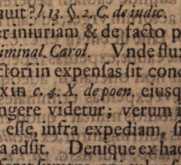 uit? l. 13. §. 2. C. de judic.
er iniuriam & de facto p
iminal. Carol. Vnde flux
ctori in expensas sit cond
x in c. 4. X. de poen. ejusq
ngere videtur; verum
esse, infra expediam, si
a adsit. Denique ex hac